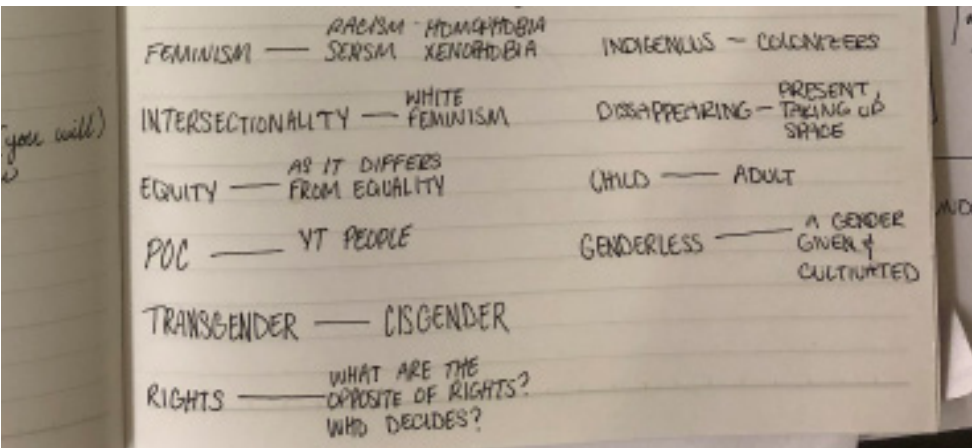 FEMINISM — RACISM HOMOPHOBIA
SEXISM XENOPHOBIA
INTERSECTIONALITY — WHITE
FEMINISM
EQUITY — AS IT DIFFERS
FROM EQUALITY
POC — YT PEOPLE
TRANSGENDER — CISGENDER
RIGHTS — WHAT ARE THE
OPPOSITE OF RIGHTS?
WHO DECIDES?
INDIGENUS — COLONIZERS
DISSAPPEARING — PRESENT,
TAKING UP
SPACE
CHILD — ADULT
GENDERLESS — A GENDER
GIVEN &
CULTIVATED
you will)